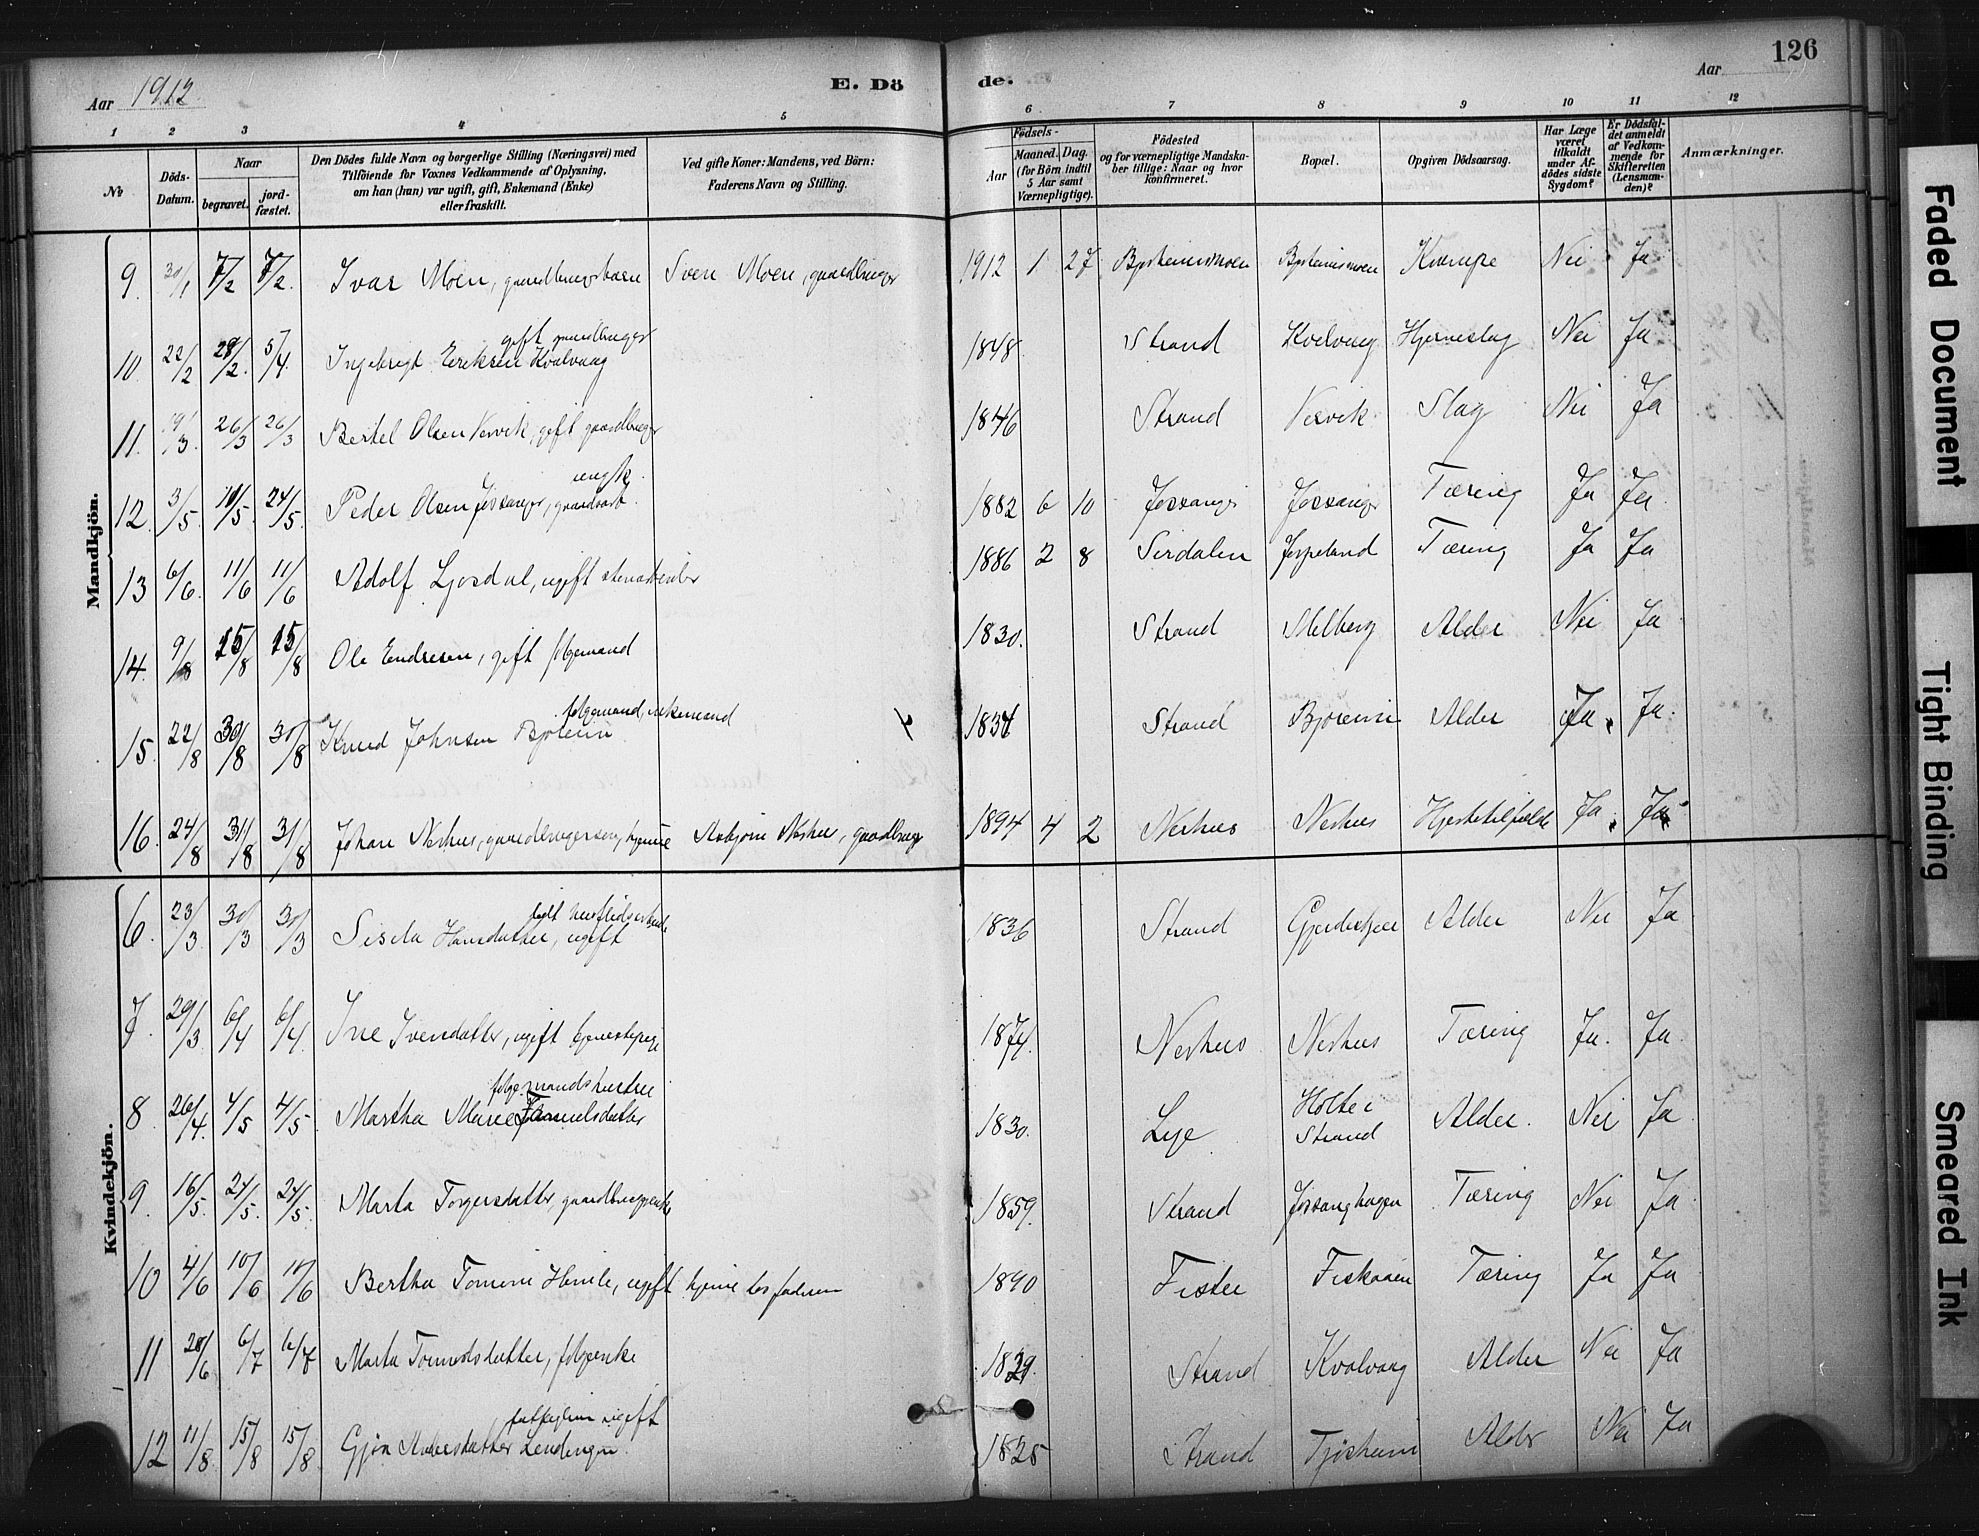 Aar 1912.
E. Dö
de.
Aar
126
1 2 3 4 5 6 7 8 9 10 11 12
№
Döds-Datum.
Naar
begravet.
jord-fæstet.
Den Dödes fulde Navn og borgerlige Stilling (Næringsvei) med
Tilföiende for Voxnes Vedkommende af Oplysning,
om han (hun) var ugift, gift, Enkemand (Enke)
eller fraskilt.
Ved gifte Koner: Mandens, ved Börn:
Faderens Navn og Stilling.
Födsels-
Aar
Maaned. Dag.
(for Börn indtil
5 Aar samt
Værnepligtige).
Födested
og for værnepligtige Mandska-
ber tillige: Naar og hvor
konfirmeret.
Bopæl.
Opgiven Dödsaarsag.
Har Læge
været
tilkaldt
under Af-
dödes sidste
Sygdom?
Er Dödsfal-
det anmeldt
af Vedkom-
mende for
Skifteretten
(Lensman-
den)?
Anmærkninger.
Mandkjön.
9. 30/1 7/2 7/2. Ivar Moen, gaardbrugsbarn Sven Moen, gaardbruger 1912 1 27 Kræmpe Nei Ja
gift gaardbruger
10. 22/2 28/2. 5/4 Ingebrigt Eriksen Kvalvaag 1848 Strand Kvalvaag Hjerneslag Nei Ja
11. 19/3. 26/3 26/3 Bertel Olsen Vervik, gift gaardbruger 1846 Strand Vervik Slag Nei Ja
12. 3/5. 10/5. 24/5. Peder Olsen Jøssanger, 1882 6 10 Jøssanger Jøssanger Tæring Ja Ja
13 6/6. 11/6 11/6 Adolf Ljosdal, ugift stenarbeider 1886 2 8 Sirdalen Jørpeland Tæring Ja Ja
14. 9/8 15/8 15/8 Ole Endresen, gift folgemand 1830. Strand Melberg Alder Nei Ja
folgemand, enkemand
15. 22/8 30/8 30/8 Knud Johnsen 1834 Strand Alder Ja. Ja.
16. 24/8 31/8 31/8 Johan Nerhus, gaardbrugersøn, hjemme Nerhus, gaardbruger 1894 4 2 Nerhus Nerhus Hjertetilfælde Ja. Ja
Kvindekjön.
6. 23/3 30/3 30/3 Siselu Hansdatter, ugift 1836 Strand Alder Nei Ja
7. 29/3 6/4 6/4. Ine Iversdatter, ugift tjenestepige 1874. Nerhus Nerhus Tæring Ja. Ja
folgemandshustru
8 26/4. 4/5 4/5. Martha Marie 1830. Lye Holte i Strand Alder. Nei Ja
9. 16/5. 24/5. 24/5. Marta Torgersdatter, gaardbrugerenke 1859. Strand Jøssanghagen Tæring Nei Ja
10 4/6 10/6 10/6 Bertha Tomine ugift hjemme hos faderen 1890 Fister Fiskaaen Tæring Ja Ja
11 28/6 6/7 6/7 Marta Tormodsdatter, folgeenke 1829. Strand Kvalvaag Alder Nei Ja
12 11/8. 15/8 15/8. Gjøa Andersdatter ugift 1825 Strand Tjøsheim Alder Nei Ja
Faded Document
Tight Binding
Smeared Ink